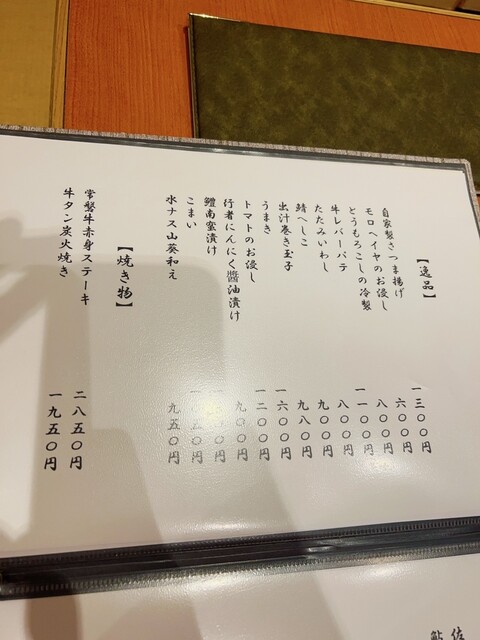 【逸品】
自家製さつま揚げ 一三〇〇円
モロヘイヤのお浸し 六〇〇円
とうもろこしの冷製 八〇〇円
牛レバーパテ 一一〇〇円
たたみいわし 八〇〇円
鯖へしこ 九〇〇円
出汁巻き玉子 九八〇円
うまき 一六〇〇円
トマトのお浸し 一二〇〇円
行者にんにく醬油漬け 九〇〇円
鱧南蛮漬け
こまい
水ナス山葵和え 九五〇円
【焼き物】
常磐牛赤身ステーキ 二八五〇円
牛タン炭火焼き 一九五〇円